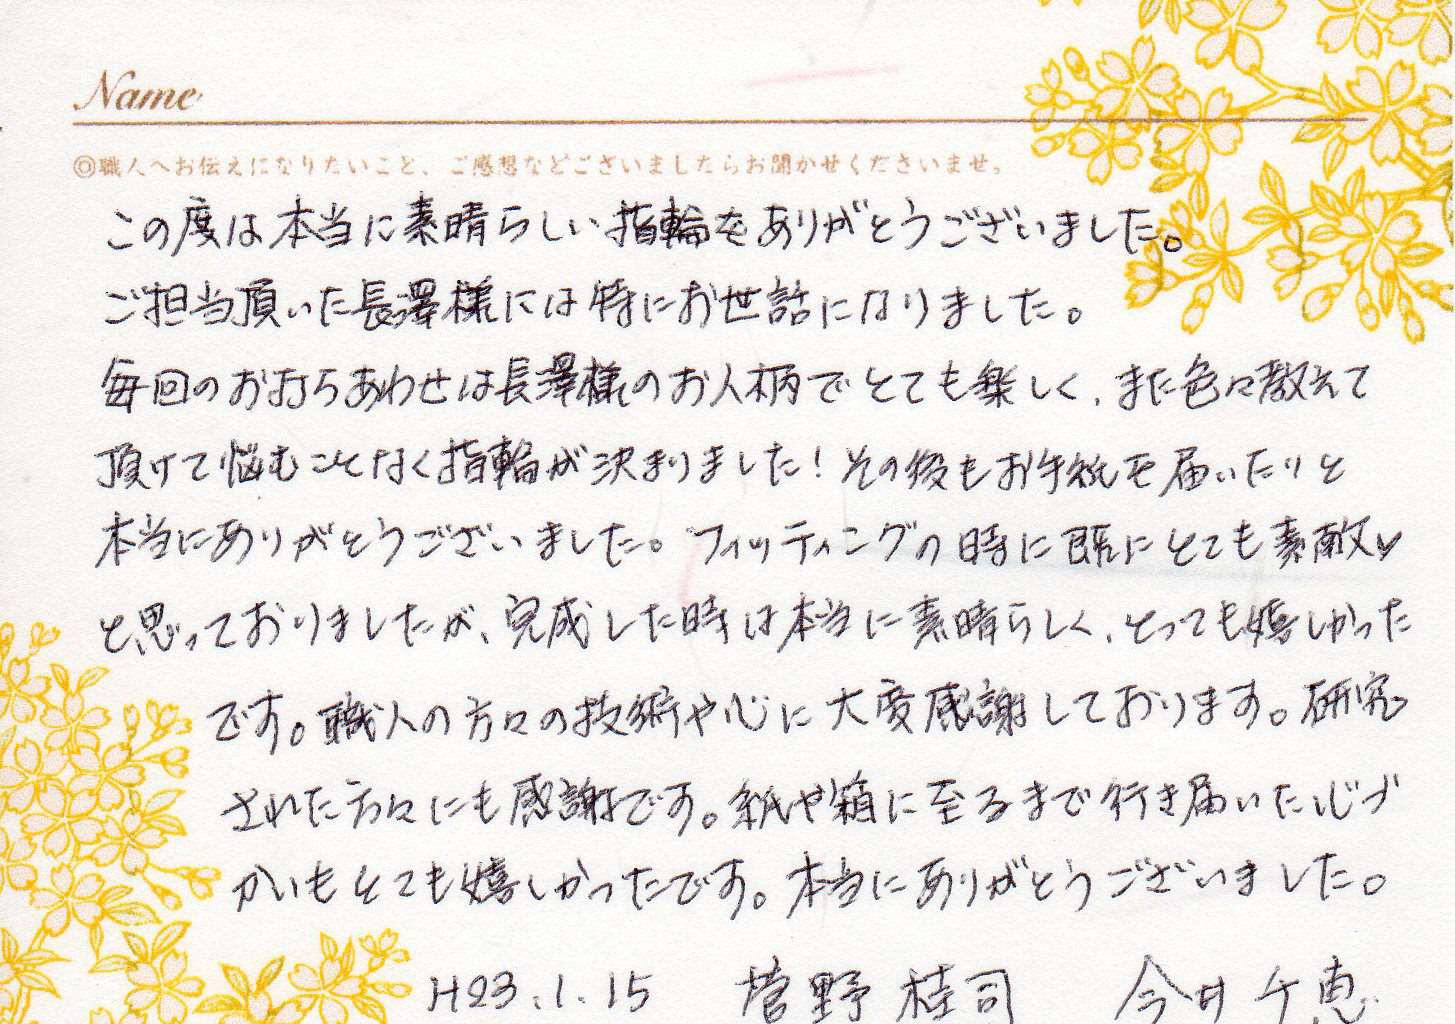 Name
◎職人へお伝えになりたいこと、ご感想などございましたらお聞かせくださいませ。
この度は本当に素晴らしい指輪をありがとうございました。
ご担当頂いた長澤様には特にお世話になりました。
毎回のお打ちあわせは長澤様のお人柄でとても楽しく、また色々教えて
頂けて悩むことなく指輪が決まりました!その後もお手紙を届いたりと
本当にありがとうございました。フィッティングの時に既にとても素敵♥
と思っておりましたが、完成した時は本当に素晴らしく、とっても嬉しかった
です。職人の方々の技術や心に大変感謝しております。研究
された方々にも感謝です。紙や箱に至るまで行き届いた心づ
かいもとても嬉しかったです。本当にありがとうございました。
H23.1.15 菅野桂司 今井千恵